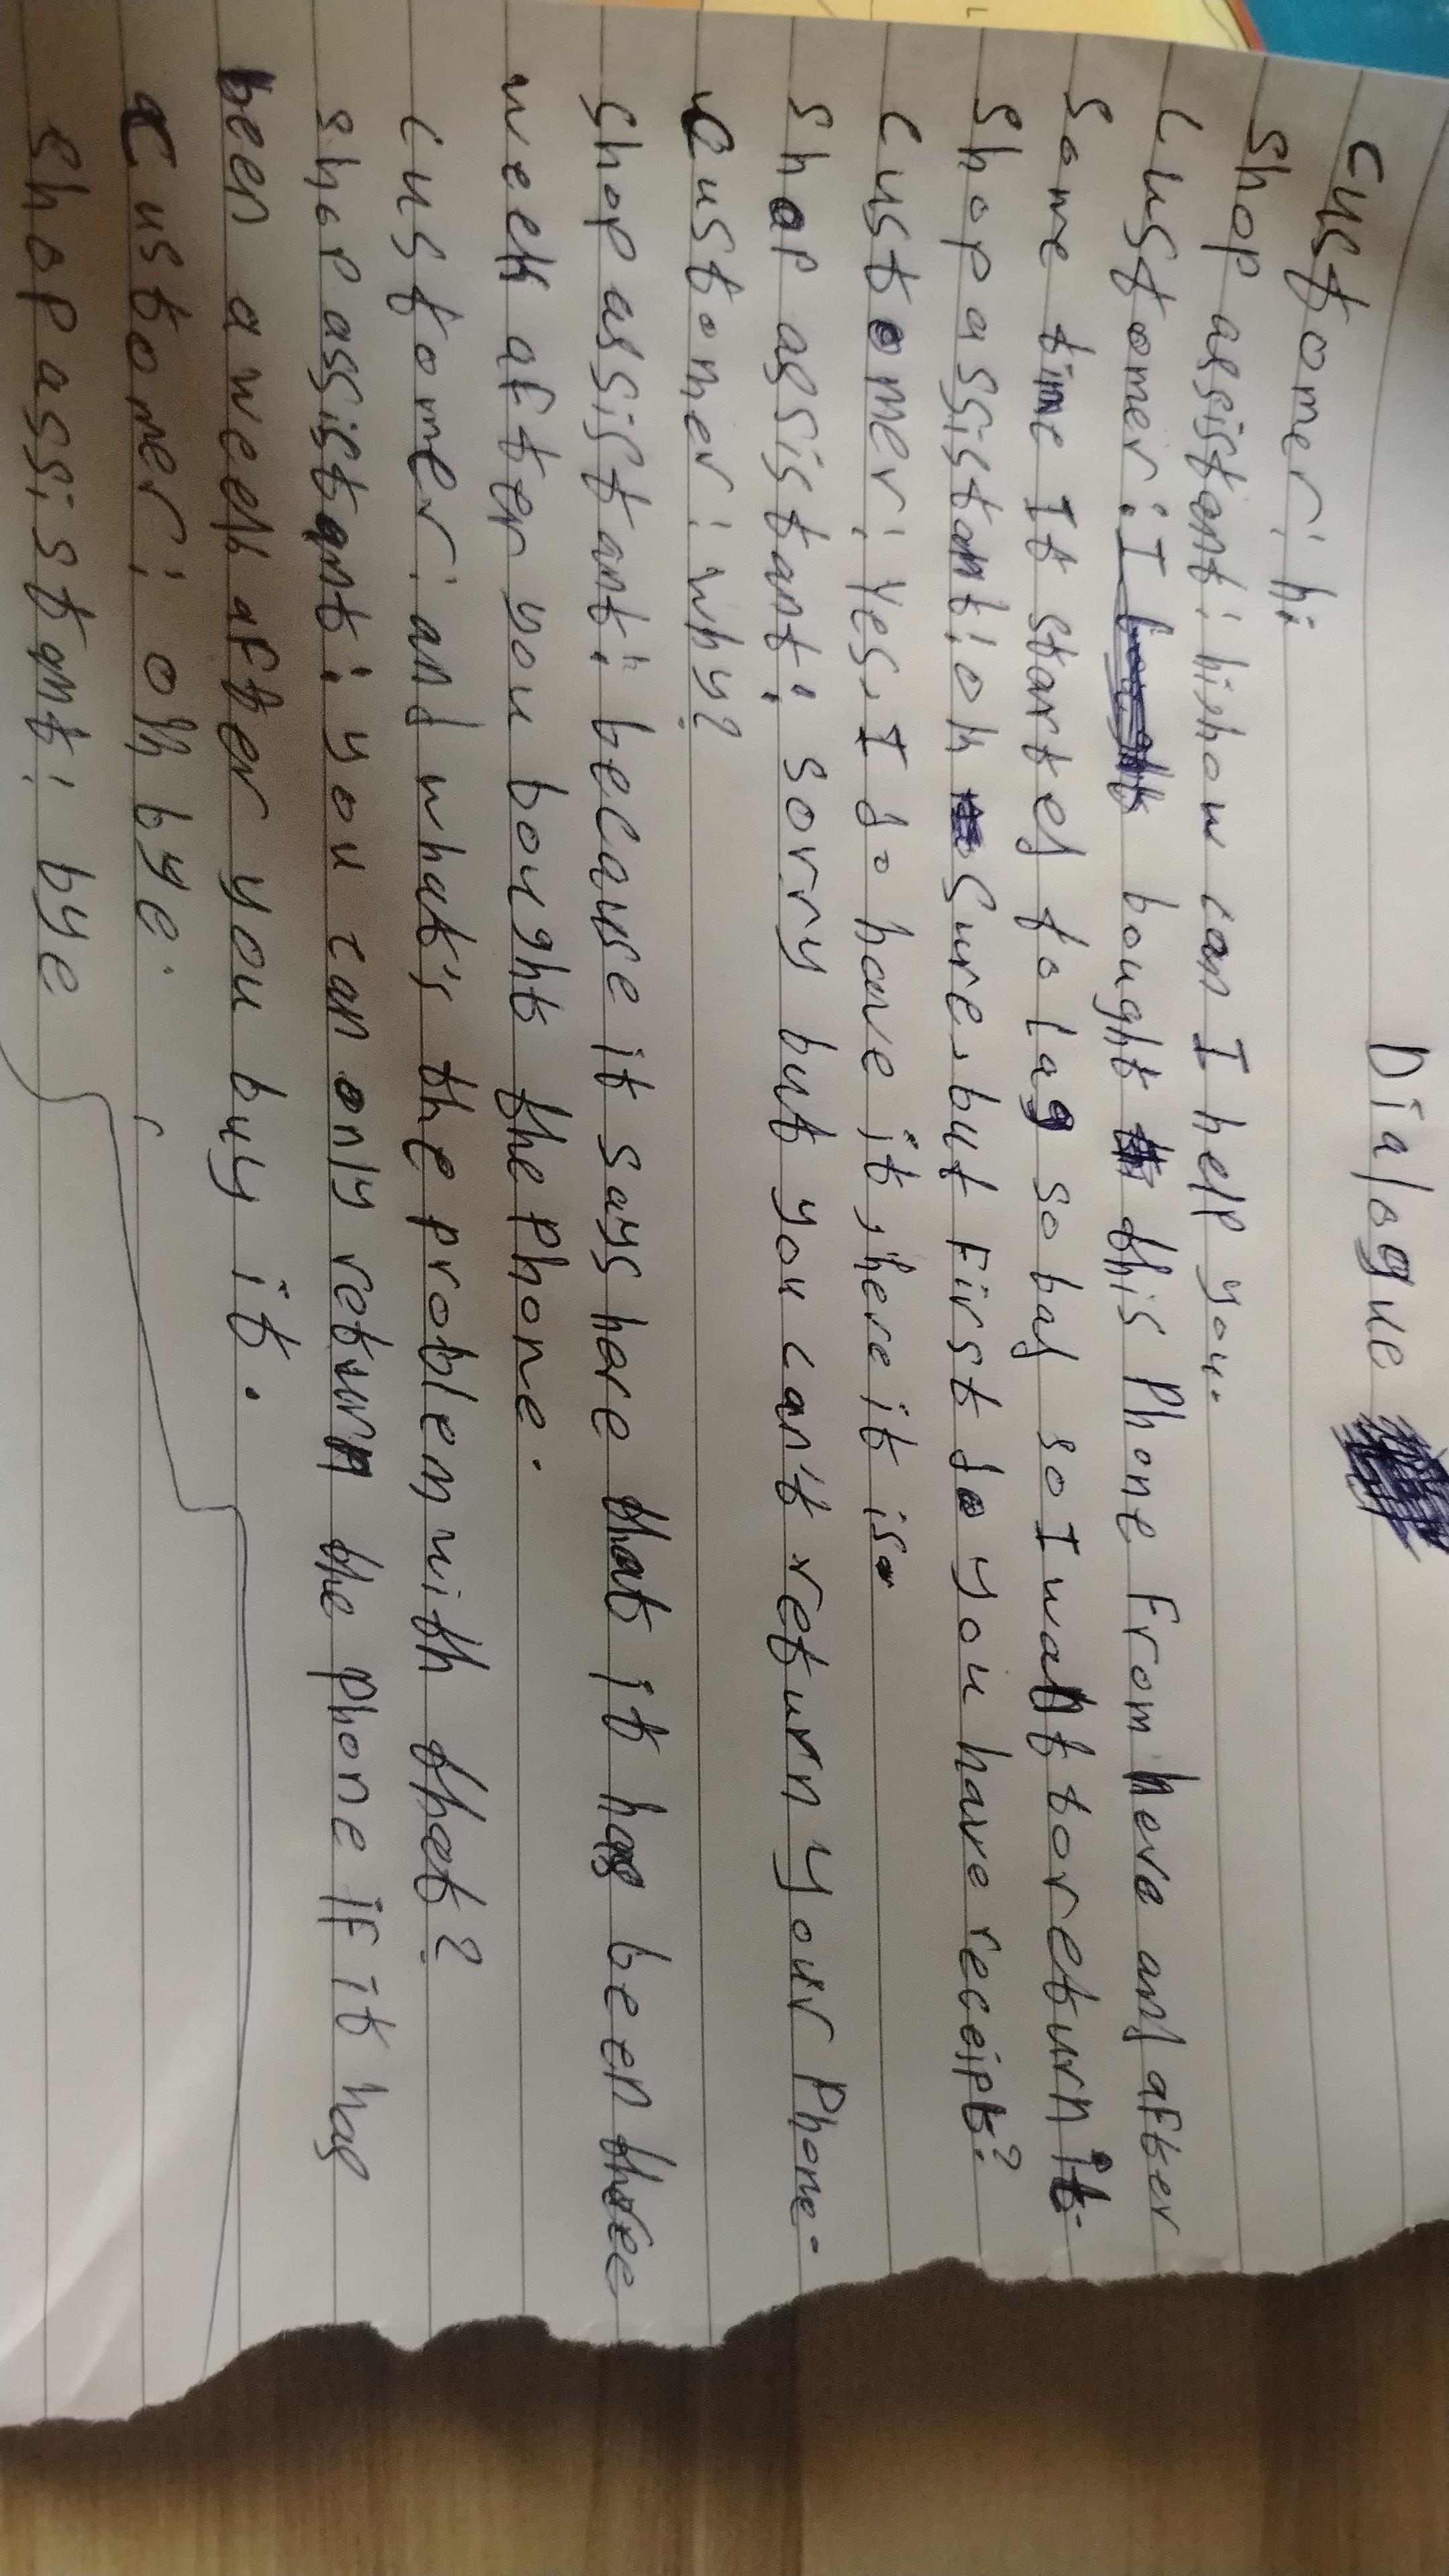 Dialogue
Customer: hi
Shop assistant: hi, how can I help you.
Customer: I bought this Phone From here and after
Some time It started to lag so bad so I want to return it.
Shop assistant: ok Sure, but First do you have receipt?
Customer: Yes, I do have it, here it is.
Shop assistant: sorry but you can't return your Phone.
Customer: why?
Shop assistant: because it says here that it has been three
week after you bought the Phone.
Customer: and what's the problem with that?
Shop assistant: you can only return the phone if it has
been a week after you buy it.
Customer: ok bye.
Shop assistant: bye